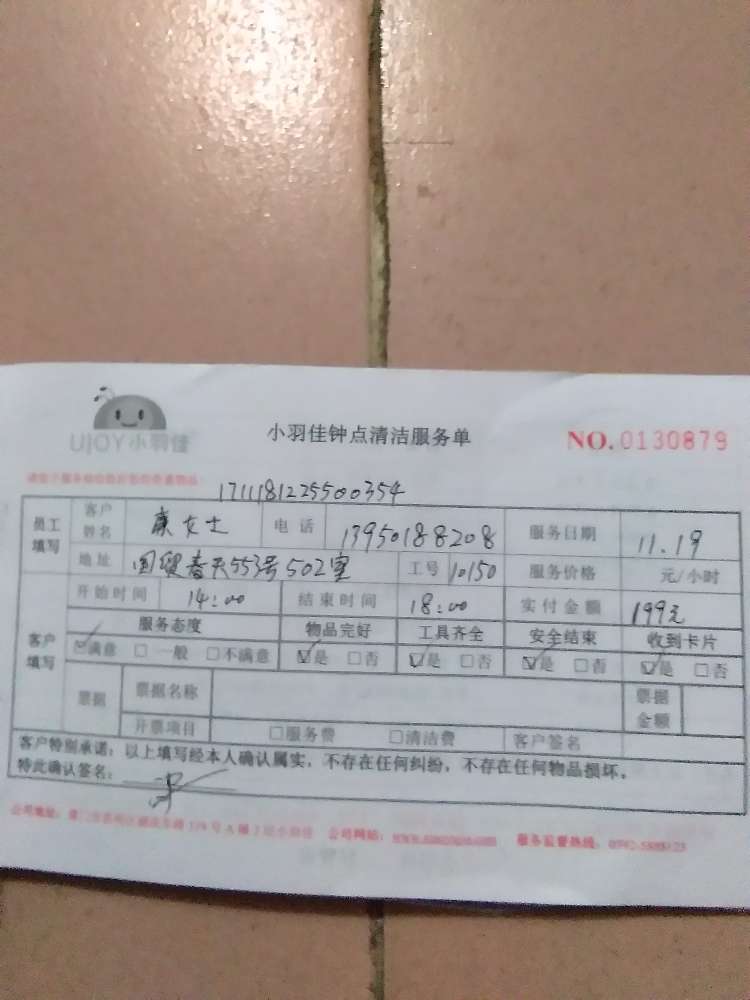 UJOY小羽佳
小羽佳钟点清洁服务单
NO.0130879
1711181225500354
员工填写 客户姓名 康女士 电话 13950188208 服务日期 11.19
地址 国贸春天553号502室 工号 10150 服务价格 元/小时
客户填写 开始时间 14:00 结束时间 18:00 实付金额 199元
服务态度 物品完好 工具齐全 安全结束 收到卡片
☑满意 □一般 □不满意 ☑是 □否 ☑是 □否 ☑是 □否 ☑是 □否
票据 票据名称 票据金额
开票项目 □服务费 □清洁费 客户签名
客户特别承诺：以上填写经本人确认属实，不存在任何纠纷，不存在任何物品损坏。
特此确认签名：
公司地址： 公司网站： 服务监督热线：